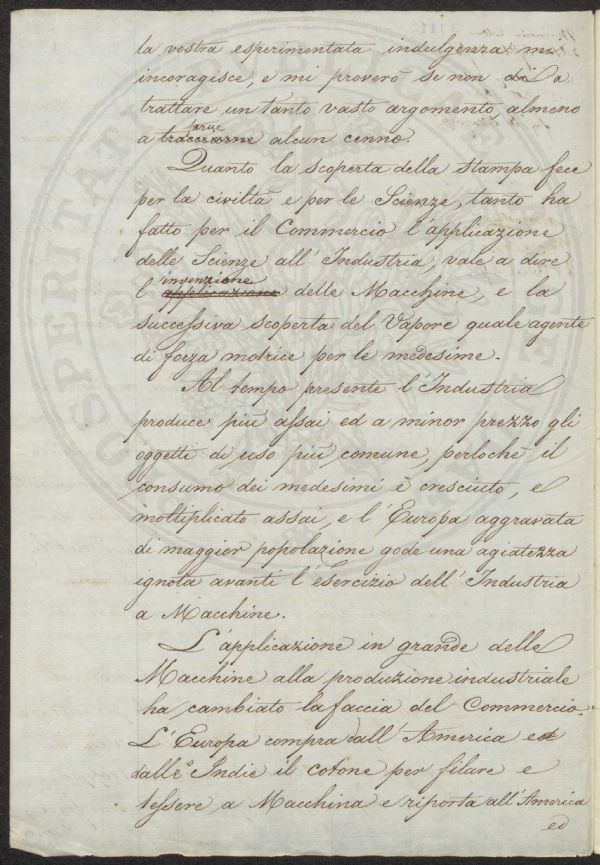 la vostra esperimentata indulgenza mi
incoragisce, e mi proverò se non di a
trattare un tanto vasto argomento, almeno
a farne alcun cenno.
Quanto la scoperta della stampa fece
per la civiltà e per le Scienze, tanto ha
fatto per il Commercio l'applicazione
delle Scienze all'Industria, vale a dire
l'invenzione delle Macchine, e la
successiva scoperta del Vapore quale agente
di forza motrice per le medesime.
Al tempo presente l'Industria
produce più assai ed a minor prezzo gli
oggetti di uso più comune, perlochè il
consumo dei medesimi è cresciuto, e
moltiplicato assai, e l'Europa aggravata
di maggior popolazione gode una agiatezza
ignota avanti l'esercizio dell'Industria
a Macchine.
L'applicazione in grande delle
Macchine alla produzione industriale
ha cambiato la faccia del Commercio.
L'Europa compra dall'America e
dalle Indie il cotone per filare e
tessere a Macchina e riporta all'America
ed